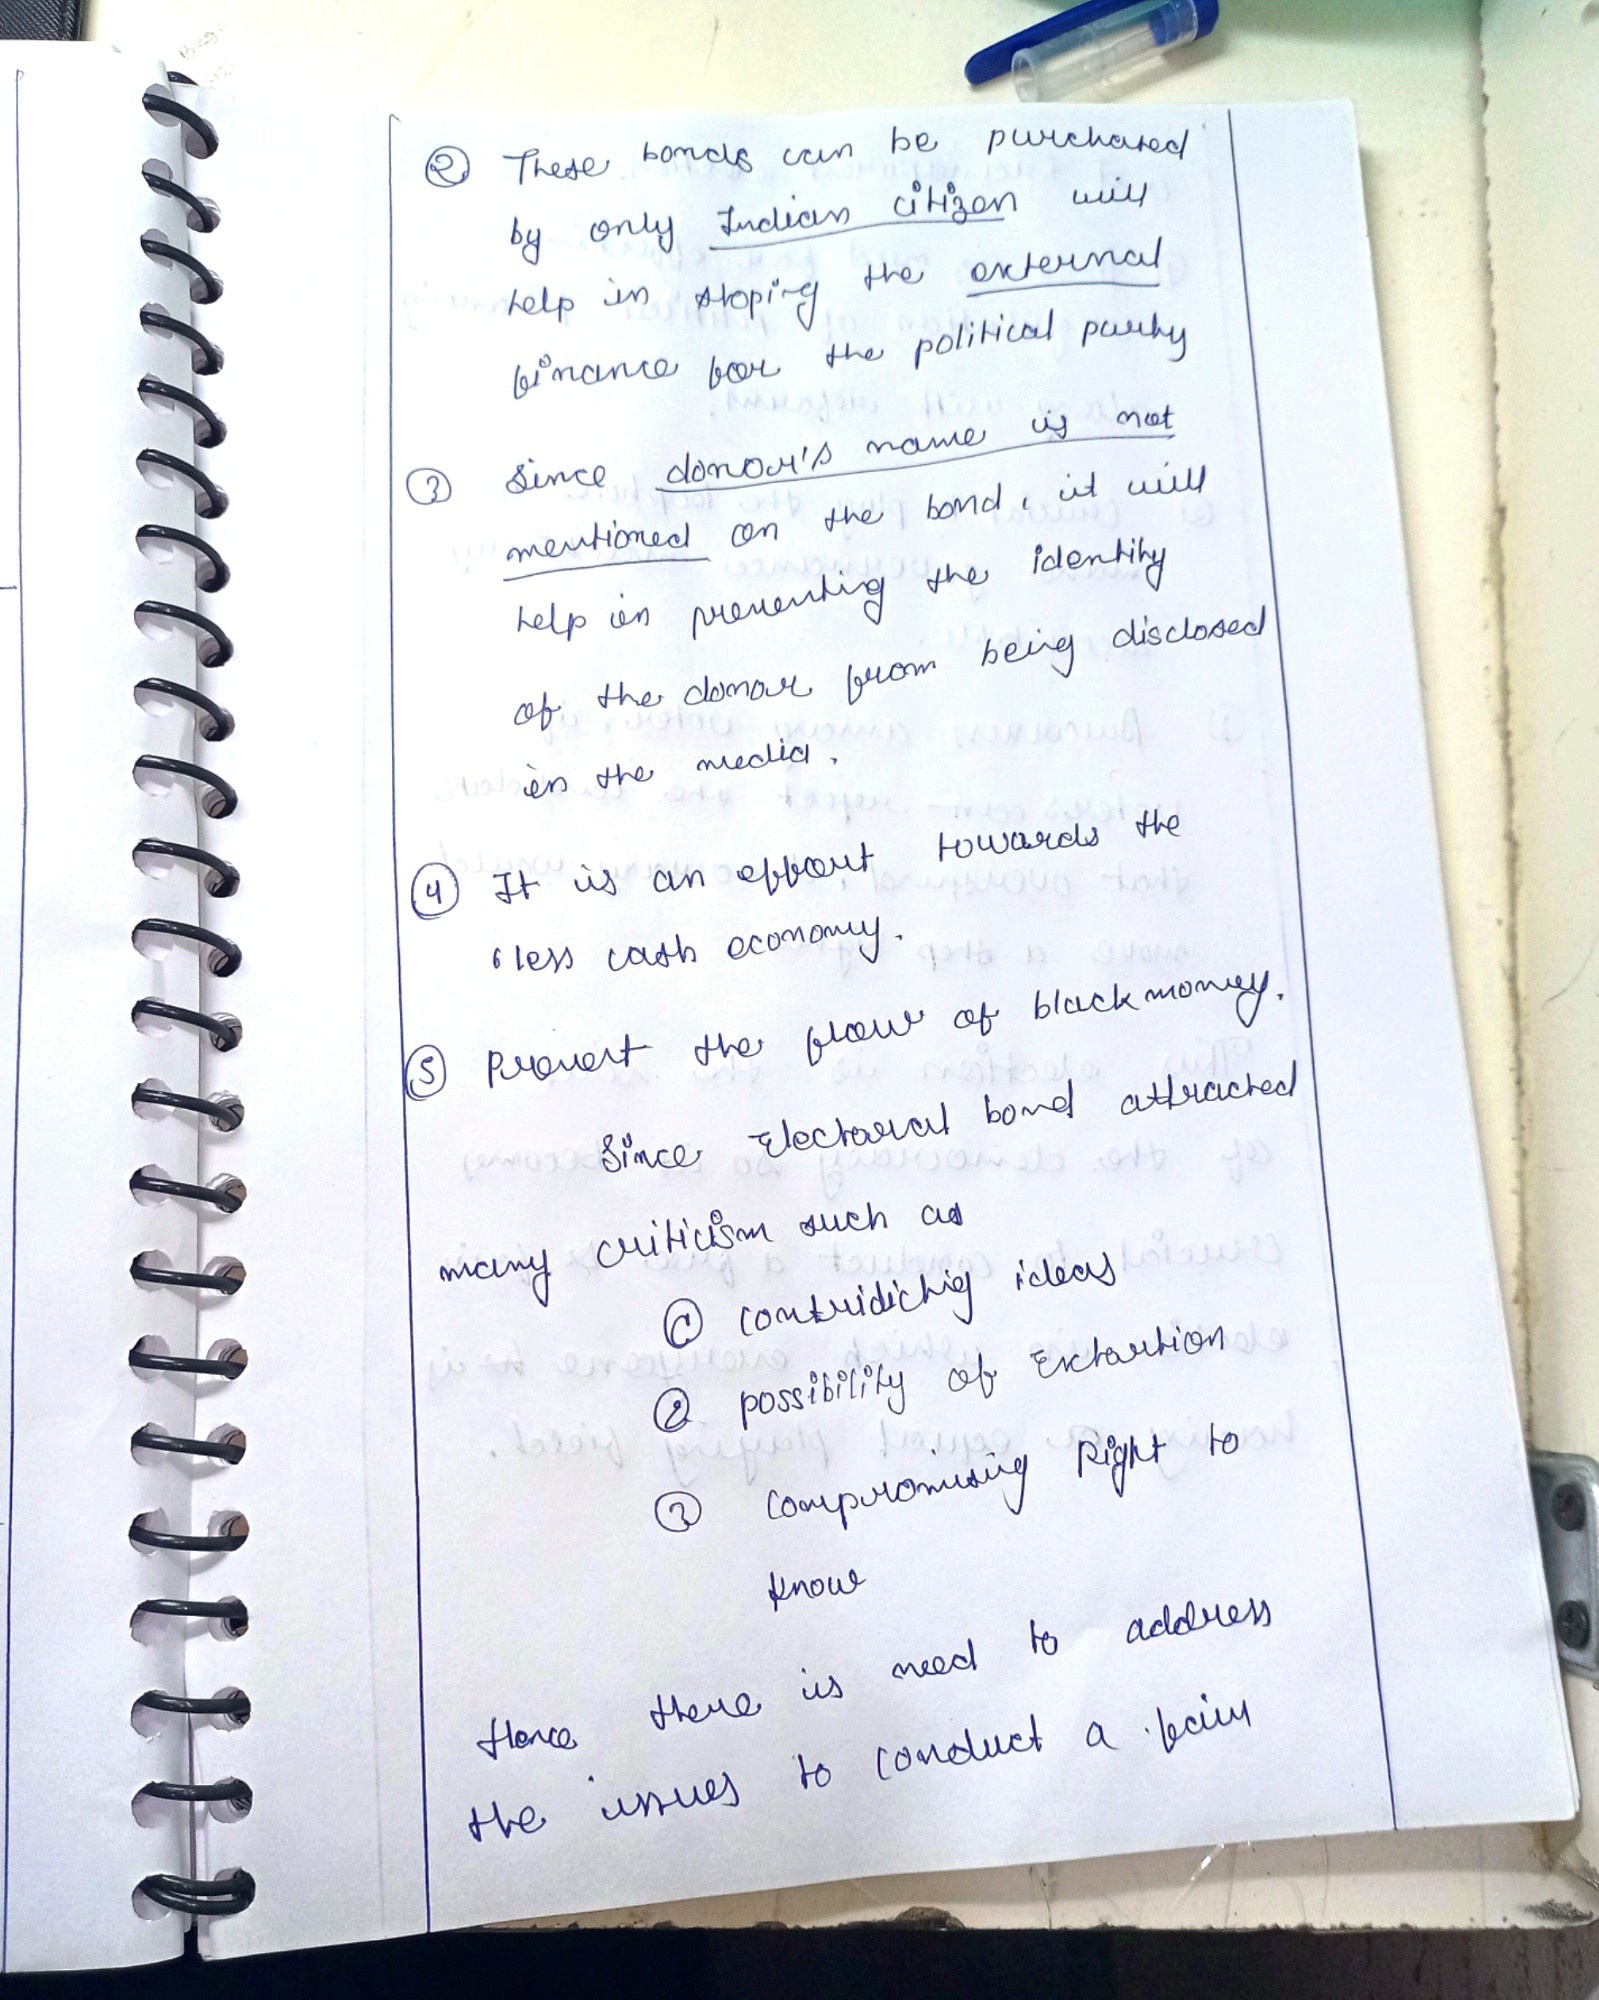 ② These bonds can be purchased
by only Indian citizen will
help in stoping the external
finance for the political party
③ Since donor's name is not
mentioned on the bond, it will
help in preventing the identity
of the donor from being disclosed
in the media.
④ It is an effort towards the
'less cash economy.
⑤ Prevent the flow of blackmoney.
Since Electoral bond attracted
many criticism such as
① contridictig ideas
② possibility of Extortion
③ compromising Right to
know
Hence there is need to address
the issues to conduct a fair